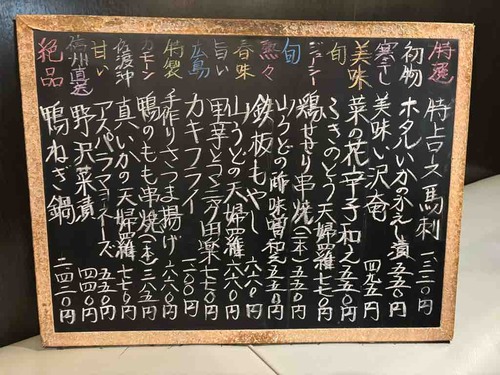 特選 特上ロース馬刺 一三二〇円
初物 ホタルいかのかえし漬 五五〇円
寒干し 美味い沢庵 四九五円
美味 菜の花辛子和え 五五〇円
旬 ふきのとう天婦羅 七七〇円
ジューシー 鶏せせり串焼(二本) 五五〇円
旬 山うどの酢味噌和え 五五〇円
熱々 鉄板もやし 六六〇円
春味 山うどの天婦羅 六六〇円
旨い 里芋とマグロ田楽 七七〇円
広島 カキフライ 一一〇〇円
特製 手作りさつま揚げ 六六〇円
カモン 鴨のもも串焼(一本) 三八五円
佐渡沖 真いかの天婦羅 七七〇円
甘い アスパラマヨネーズ 五五〇円
信州直送 野沢菜漬 四四〇円
絶品 鴨ねぎ鍋 二四二〇円